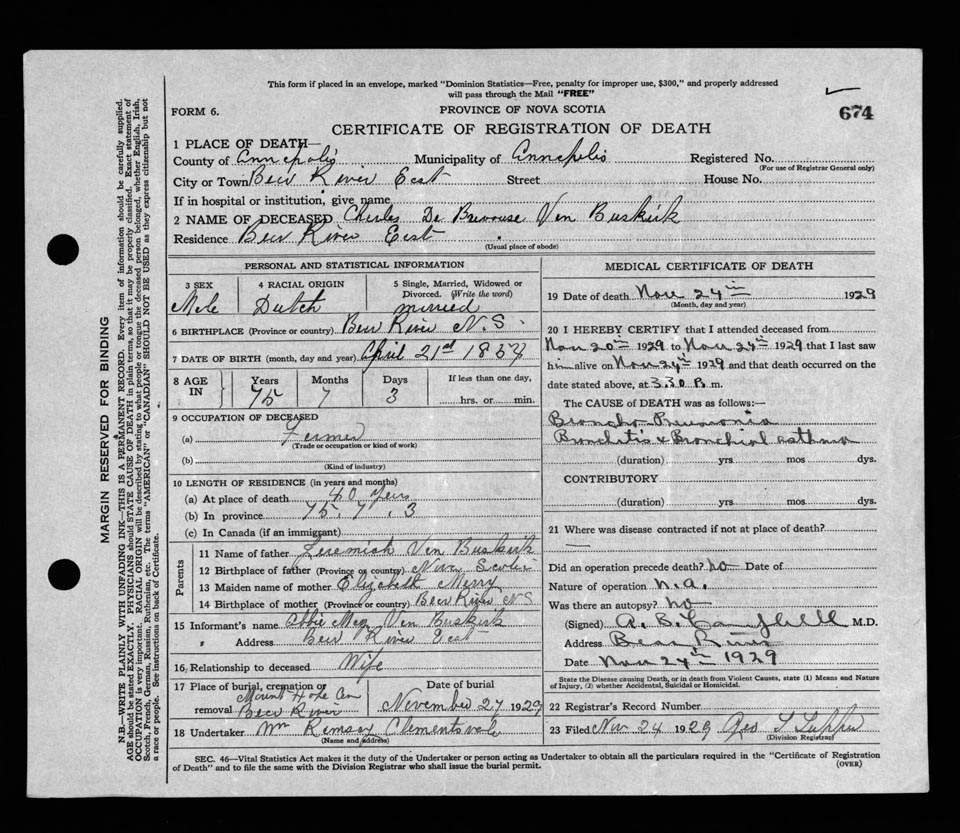 This form if placed in an envelope, marked "Dominion Statistics—Free, penalty for improper use, $300," and properly addressed
will pass through the Mail "FREE"
674
FORM 6. PROVINCE OF NOVA SCOTIA
CERTIFICATE OF REGISTRATION OF DEATH
1 PLACE OF DEATH—
County of Annapolis Municipality of Annapolis Registered No.
(For use of Registrar General only)
City or Town Bear River East Street House No.
If in hospital or institution, give name
2 NAME OF DECEASED Charles De Van Buskirk
Residence Bear River East
(Usual place of abode)
PERSONAL AND STATISTICAL INFORMATION
3 SEX 4 RACIAL ORIGIN 5 Single, Married, Widowed or
Divorced. (Write the word)
Male Dutch married
6 BIRTHPLACE (Province or country) Bear River N.S.
7 DATE OF BIRTH (month, day and year) April 21st
8 AGE IN Years Months Days If less than one day,
75 7 3 hrs. or min.
9 OCCUPATION OF DECEASED
(a) Farmer
(Trade or occupation or kind of work)
(b)
(Kind of industry)
10 LENGTH OF RESIDENCE (in years and months)
(a) At place of death 40 years
(b) In province 75. 7. 3
(c) In Canada (if an immigrant)
Parents
11 Name of father Jeremiah Van Buskirk
12 Birthplace of father (Province or country) Nova Scotia
13 Maiden name of mother Elizabeth Merry
14 Birthplace of mother (Province or country) Bear River NS
15 Informant's name Abbie May Van Buskirk
" Address Bear River East
16 Relationship to deceased Wife
17 Place of burial, cremation or Date of burial
removal Mount Hope
Bear River November 27 1929
18 Undertaker Wm Ramsay Clementsvale
(Name and address)
MEDICAL CERTIFICATE OF DEATH
19 Date of death Nov 24th 1929
(Month, day and year)
20 I HEREBY CERTIFY that I attended deceased from
Nov 20th 1929 to Nov 24th 1929 that I last saw
him alive on Nov 24th 1929 and that death occurred on the
date stated above, at 3.30 P. m.
The CAUSE OF DEATH was as follows:—
Broncho-Pneumonia
Bronchitis & Bronchial asthma
(duration) yrs mos dys.
CONTRIBUTORY
(duration) yrs mos dys.
21 Where was disease contracted if not at place of death?
—
Did an operation precede death? no Date of
Nature of operation n.a.
Was there an autopsy? no
(Signed) A. B. Campbell M.D.
Address Bear River
Date Nov 24th 1929
State the Disease causing Death, or in death from Violent Causes, state (1) Means and Nature
of Injury, (2) whether Accidental, Suicidal or Homicidal.
22 Registrar's Record Number
23 Filed Nov 24 1929 Geo
(Division Registrar)
SEC. 46—Vital Statistics Act makes it the duty of the Undertaker or person acting as Undertaker to obtain all the particulars required in the "Certificate of Registration
of Death" and to file the same with the Division Registrar who shall issue the burial permit. (OVER)
MARGIN RESERVED FOR BINDING
N.B.—WRITE PLAINLY WITH UNFADING INK—THIS IS A PERMANENT RECORD. Every item of information should be carefully supplied.
AGE should be stated EXACTLY. PHYSICIANS should STATE CAUSE OF DEATH in plain terms, so that it may be properly classified. Exact statement of
OCCUPATION is very important. RACIAL ORIGIN will be described by stating to what people or tongue the deceased person belonged, whether English, Irish,
Scotch, French, German, Russian, Ruthenian, etc. The terms "AMERICAN" or "CANADIAN" SHOULD NOT BE USED as they express citizenship but not
a race or people. See instructions on back of Certificate.